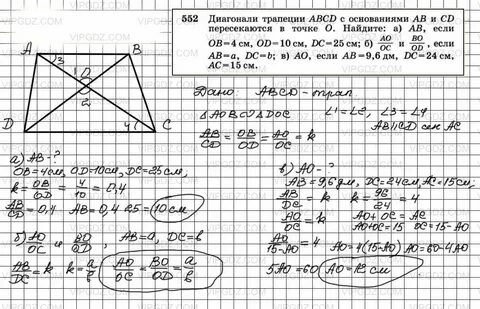 552 Диагонали трапеции ABCD с основаниями AB и CD
пересекаются в точке O. Найдите: а) AB, если
OB=4 см, OD=10 см, DC=25 см; б) AO/OC и BO/OD, если
AB=a, DC=b; в) AO, если AB=9,6 дм, DC=24 см,
AC=15 см.
A B
3
1
O
2
D 4 C
Дано: ABCD - трап.
△AOB ∽ △DOC ∠1=∠2, ∠3=∠4
AB∥CD сек AC
AB/CD = OB/OD = AO/OC = k
а) AB-?
OB=4см, OD=10см, DC=25см,
k = OB/OD = 4/10 = 0,4
AB/CD = 0,4 AB=0,4·25=10см
б) AO/OC и BO/OD, AB=a, DC=b
AB/DC = k k=a/b AO/OC = BO/OD = a/b
в) AO-?
AB=9,6дм, DC=24см, AC=15см;
AB/DC = k k=96/24=4
AO/OC = k AO+OC=AC
AO+OC=15 OC=15-AO
AO/15-AO = 4 AO=4(15-AO) AO=60-4AO
5AO=60 AO=12см